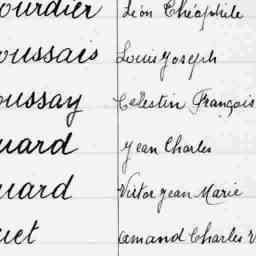 ourdier Léon Théophile
oussais Louis Joseph
oussay Célestin François
uard Jean Charles
uard Victor Jean Marie
uet Amand Charles V